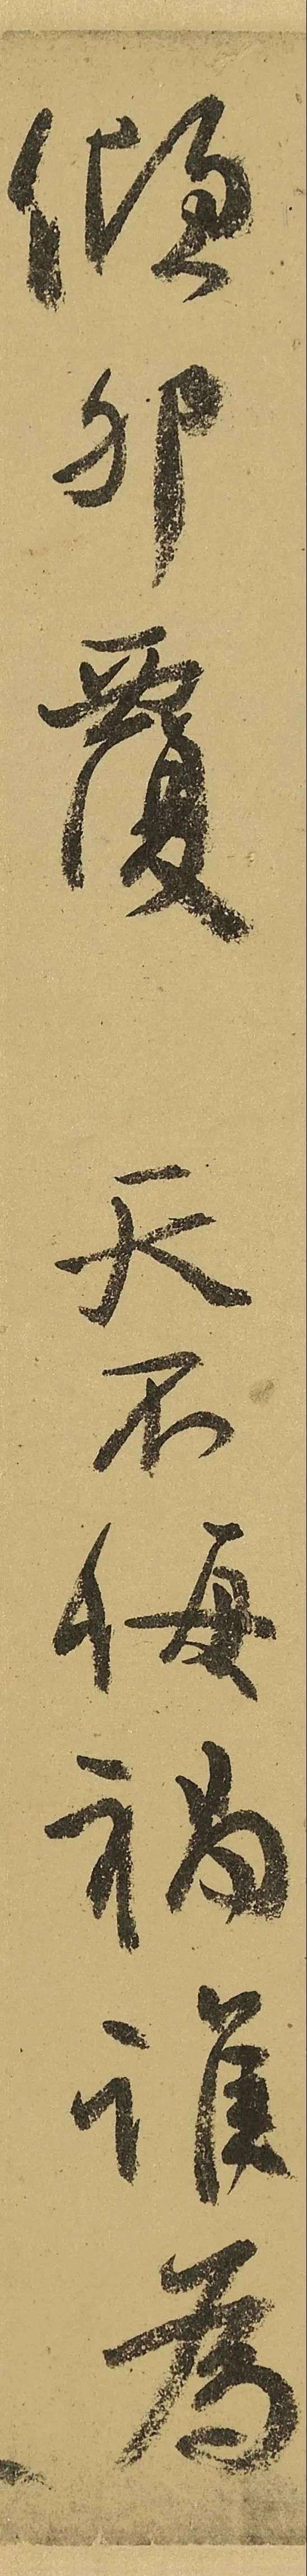 傾卵覆 天不悔禍誰爲